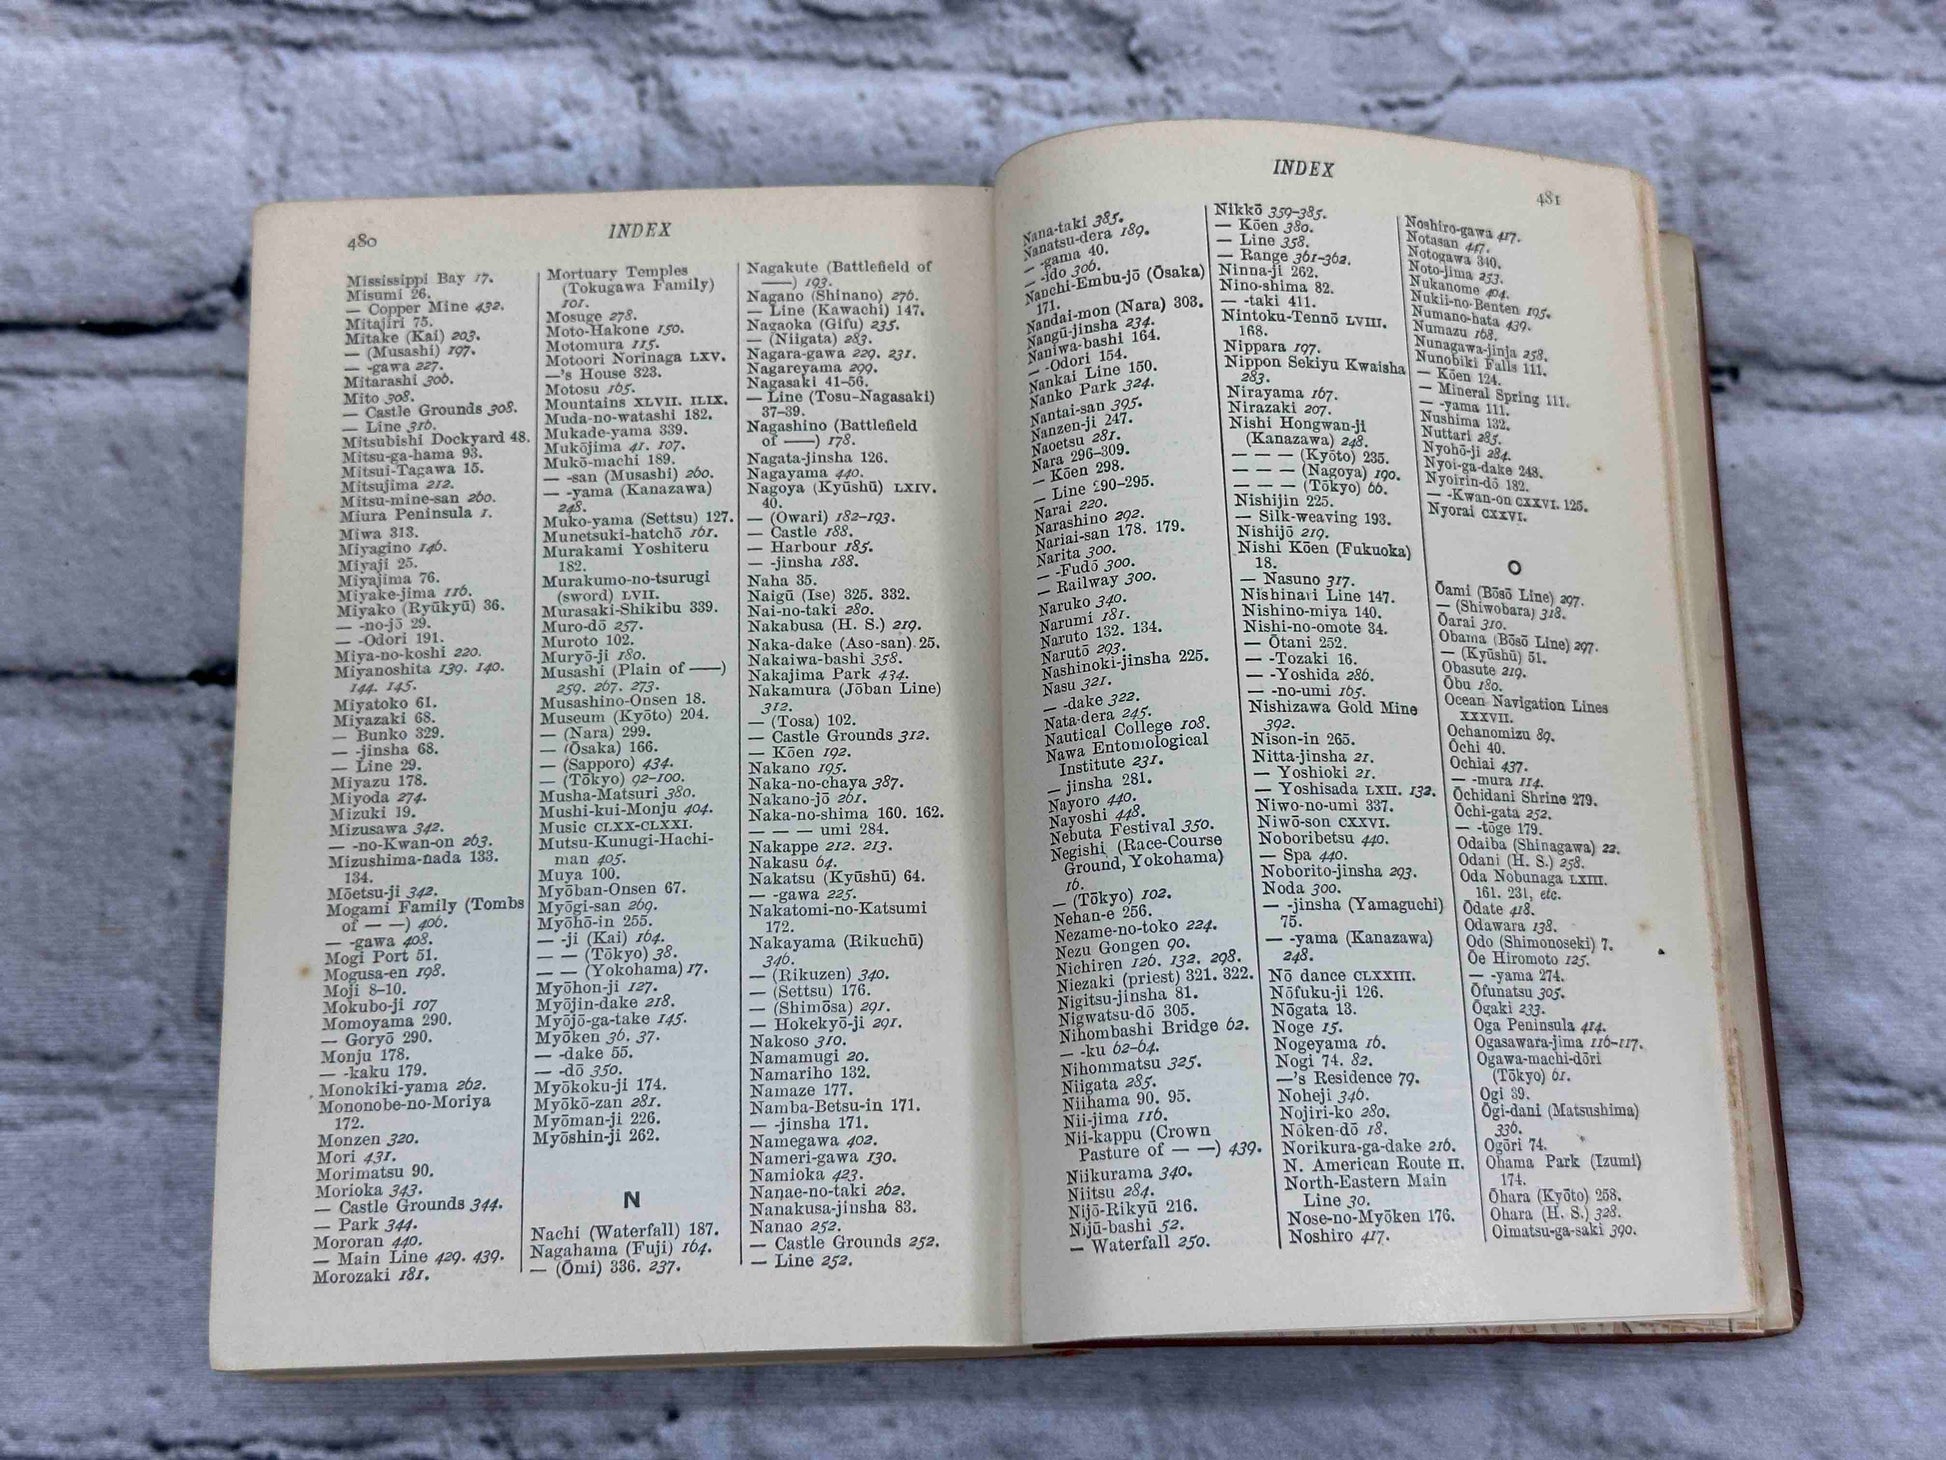 480
INDEX
Mississippi Bay 17.
Misumi 26.
— Copper Mine 432.
Mitajiri 75.
Mitake (Kai) 203.
— (Musashi) 197.
— -gawa 227.
Mitarashi 306.
Mito 308.
— Castle Grounds 308.
— Line 316.
Mitsubishi Dockyard 48.
Mitsu-ga-hama 93.
Mitsui-Tagawa 15.
Mitsujima 212.
Mitsu-mine-san 260.
Miura Peninsula 1.
Miwa 313.
Miyagino 146.
Miyaji 25.
Miyajima 76.
Miyake-jima 116.
Miyako (Ryūkyū) 36.
— -no-jō 29.
— -Odori 191.
Miya-no-koshi 220.
Miyanoshita 139. 140.
144. 145.
Miyatoko 61.
Miyazaki 68.
— Bunko 329.
— -jinsha 68.
— Line 29.
Miyazu 178.
Miyoda 274.
Mizuki 19.
Mizusawa 342.
— -no-Kwan-on 263.
Mizushima-nada 133.
134.
Mōetsu-ji 342.
Mogami Family (Tombs
of — —) 406.
— -gawa 408.
Mogi Port 51.
Mogusa-en 198.
Moji 8-10.
Mokubo-ji 107
Momoyama 290.
— Goryō 290.
Monju 178.
— -kaku 179.
Monokiki-yama 262.
Mononobe-no-Moriya
172.
Monzen 320.
Mori 431.
Morimatsu 90.
Morioka 343.
— Castle Grounds 344.
— Park 344.
Mororan 440.
— Main Line 429. 439.
Morozaki 181.
Mortuary Temples
(Tokugawa Family)
101.
Mosuge 278.
Moto-Hakone 150.
Motomura 115.
Motoori Norinaga LXV.
—'s House 323.
Motosu 165.
Mountains XLVII. ILIX.
Muda-no-watashi 182.
Mukade-yama 339.
Mukōjima 41. 107.
Mukō-machi 189.
— -san (Musashi) 260.
— -yama (Kanazawa)
248.
Muko-yama (Settsu) 127.
Munetsuki-hatchō 161.
Murakami Yoshiteru
182.
Murakumo-no-tsurugi
(sword) LVII.
Murasaki-Shikibu 339.
Muro-dō 257.
Muroto 102.
Muryō-ji 180.
Musashi (Plain of ——)
259. 267. 273.
Musashino-Onsen 18.
Museum (Kyōto) 204.
— (Nara) 299.
— (Ōsaka) 166.
— (Sapporo) 434.
— (Tōkyo) 92-100.
Musha-Matsuri 380.
Mushi-kui-Monju 404.
Music CLXX-CLXXI.
Mutsu-Kunugi-Hachi-
man 405.
Muya 100.
Myōban-Onsen 67.
Myōgi-san 269.
Myōhō-in 255.
— -ji (Kai) 164.
— — (Tōkyo) 38.
— — (Yokohama) 17.
Myōhon-ji 127.
Myōjin-dake 218.
Myōjō-ga-take 145.
Myōken 36. 37.
— -dake 55.
— -dō 350.
Myōkoku-ji 174.
Myōkō-zan 281.
Myōman-ji 226.
Myōshin-ji 262.
N
Nachi (Waterfall) 187.
Nagahama (Fuji) 164.
— (Ōmi) 336. 237.
Nagakute (Battlefield of
——) 193.
Nagano (Shinano) 276.
— Line (Kawachi) 147.
Nagaoka (Gifu) 235.
— (Niigata) 283.
Nagara-gawa 229. 231.
Nagareyama 299.
Nagasaki 41-56.
— Line (Tosu-Nagasaki)
37-39.
Nagashino (Battlefield
of ——) 178.
Nagata-jinsha 126.
Nagayama 440.
Nagoya (Kyūshū) LXIV.
40.
— (Owari) 182-193.
— Castle 188.
— Harbour 185.
— -jinsha 188.
Naha 35.
Naigū (Ise) 325. 332.
Nai-no-taki 280.
Nakabusa (H. S.) 219.
Naka-dake (Aso-san) 25.
Nakaiwa-bashi 358.
Nakajima Park 434.
Nakamura (Jōban Line)
312.
— (Tosa) 102.
— Castle Grounds 312.
— Kōen 192.
Nakano 195.
Naka-no-chaya 387.
Nakano-jō 261.
Naka-no-shima 160. 162.
— — — umi 284.
Nakappe 212. 213.
Nakasu 64.
Nakatsu (Kyūshū) 64.
— -gawa 225.
Nakatomi-no-Katsumi
172.
Nakayama (Rikuchū)
346.
— (Rikuzen) 340.
— (Settsu) 176.
— (Shimōsa) 291.
— Hokekyō-ji 291.
Nakoso 310.
Namamugi 20.
Namariho 132.
Namaze 177.
Namba-Betsu-in 171.
— -jinsha 171.
Namegawa 402.
Nameri-gawa 130.
Namioka 423.
Nanae-no-taki 262.
Nanakusa-jinsha 83.
Nanao 252.
— Castle Grounds 252.
— Line 252.
INDEX
481
Nana-taki 385.
Nanatsu-dera 189.
— -gama 40.
— -ido 306.
Nanchi-Embu-jō (Ōsaka)
171.
Nandai-mon (Nara) 303.
Nangū-jinsha 234.
Naniwa-bashi 164.
— -Odori 154.
Nankai Line 150.
Nanko Park 324.
Nantai-san 395.
Nanzen-ji 247.
Naoetsu 281.
Nara 296-309.
— Kōen 298.
— Line 290-295.
Narai 220.
Narashino 292.
Nariai-san 178. 179.
Narita 300.
— -Fudō 300.
— Railway 300.
Naruko 340.
Narumi 181.
Naruto 132. 134.
Narutō 293.
Nashinoki-jinsha 225.
Nasu 321.
— -dake 322.
Nata-dera 245.
Nautical College 108.
Nawa Entomological
Institute 231.
— jinsha 281.
Nayoro 440.
Nayoshi 448.
Nebuta Festival 350.
Negishi (Race-Course
Ground, Yokohama)
16.
— (Tōkyo) 102.
Nehan-e 256.
Nezame-no-toko 224.
Nezu Gongen 90.
Nichiren 126. 132. 298.
Niezaki (priest) 321. 322.
Nigitsu-jinsha 81.
Nigwatsu-dō 305.
Nihombashi Bridge 62.
— -ku 62-64.
Nihommatsu 325.
Niigata 285.
Niihama 90. 95.
Nii-jima 116.
Nii-kappu (Crown
Pasture of — —) 439.
Niikurama 340.
Niitsu 284.
Nijō-Rikyū 216.
Nijū-bashi 52.
— Waterfall 250.
Nikkō 359-385.
— Kōen 380.
— Line 358.
— Range 361-362.
Ninna-ji 262.
Nino-shima 82.
— -taki 411.
Nintoku-Tennō LVIII.
168.
Nippara 197.
Nippon Sekiyu Kwaisha
283.
Nirayama 167.
Nirazaki 207.
Nishi Hongwan-ji
(Kanazawa) 248.
— — — (Kyōto) 235.
— — — (Nagoya) 190.
— — — (Tōkyo) 66.
Nishijin 225.
— Silk-weaving 193.
Nishijō 219.
Nishi Kōen (Fukuoka)
18.
— Nasuno 317.
Nishinari Line 147.
Nishino-miya 140.
Nishi-no-omote 34.
— Ōtani 252.
— -Tozaki 16.
— -Yoshida 286.
— -no-umi 165.
Nishizawa Gold Mine
392.
Nison-in 265.
Nitta-jinsha 21.
— Yoshioki 21.
— Yoshisada LXII. 132.
Niwo-no-umi 337.
Niwō-son CXXVI.
Noboribetsu 440.
— Spa 440.
Noborito-jinsha 293.
Noda 300.
— -jinsha (Yamaguchi)
75.
— -yama (Kanazawa)
248.
Nō dance CLXXIII.
Nōfuku-ji 126.
Nōgata 13.
Noge 15.
Nogeyama 16.
Nogi 74. 82.
—'s Residence 79.
Noheji 346.
Nojiri-ko 280.
Nōken-dō 18.
Norikura-ga-dake 216.
N. American Route II.
North-Eastern Main
Line 30.
Nose-no-Myōken 176.
Noshiro 417.
Noshiro-gawa 417.
Notasan 447.
Notogawa 340.
Noto-jima 253.
Nukanome 404.
Nukii-no-Benten 195.
Numano-hata 439.
Numazu 168.
Nunagawa-jinja 258.
Nunobiki Falls 111.
— Kōen 124.
— Mineral Spring 111.
— -yama 111.
Nushima 132.
Nuttari 285.
Nyohō-ji 284.
Nyoi-ga-dake 248.
Nyoirin-dō 182.
— -Kwan-on CXXVI. 125.
Nyorai CXXVI.
O
Ōami (Bōsō Line) 297.
— (Shiwobara) 318.
Ōarai 310.
Obama (Bōsō Line) 297.
— (Kyūshū) 51.
Obasute 219.
Ōbu 180.
Ocean Navigation Lines
XXXVII.
Ochanomizu 89.
Ōchi 40.
Ochiai 437.
— -mura 114.
Ōchidani Shrine 279.
Ōchi-gata 252.
— -tōge 179.
Odaiba (Shinagawa) 22.
Odani (H. S.) 258.
Oda Nobunaga LXIII.
161. 231, etc.
Ōdate 418.
Odawara 138.
Odo (Shimonoseki) 7.
Ōe Hiromoto 125.
— -yama 274.
Ōfunatsu 305.
Ōgaki 233.
Oga Peninsula 414.
Ogasawara-jima 116-117.
Ogawa-machi-dōri
(Tōkyo) 61.
Ogi 39.
Ōgi-dani (Matsushima)
336.
Ogōri 74.
Ohama Park (Izumi)
174.
Ōhara (Kyōto) 258.
Ohara (H. S.) 328.
Oimatsu-ga-saki 390.